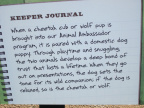 KEEPER JOURNAL
When a cheetah cub or wolf pup is
brought into our Animal Ambassador
program, it is paired with a domestic dog
puppy. Through playtime and snuggling,
the two animals develop a deep bond of
trust that lasts a lifetime. When they go
out on presentations, the dog sets the
tone for its wild companion: if the dog is
relaxed, so is the cheetah or wolf.